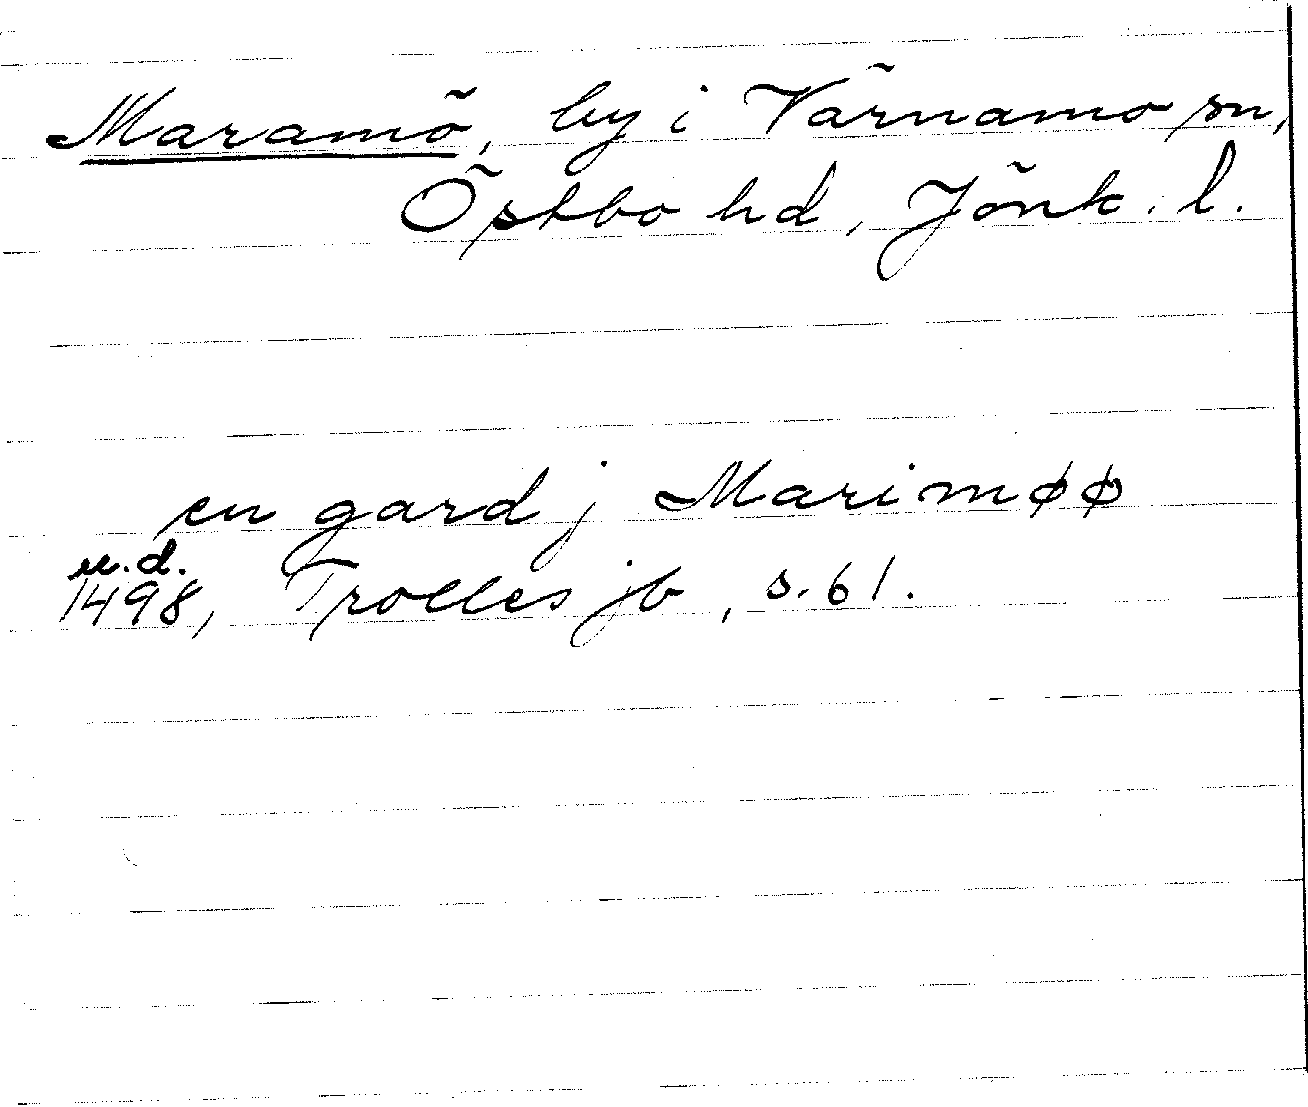 Maramö, by i Värnamo sn,
Östbo hd, Jönk. l.
en gard j Marimøø
u.d.
1498, Trolles jb, s. 61.